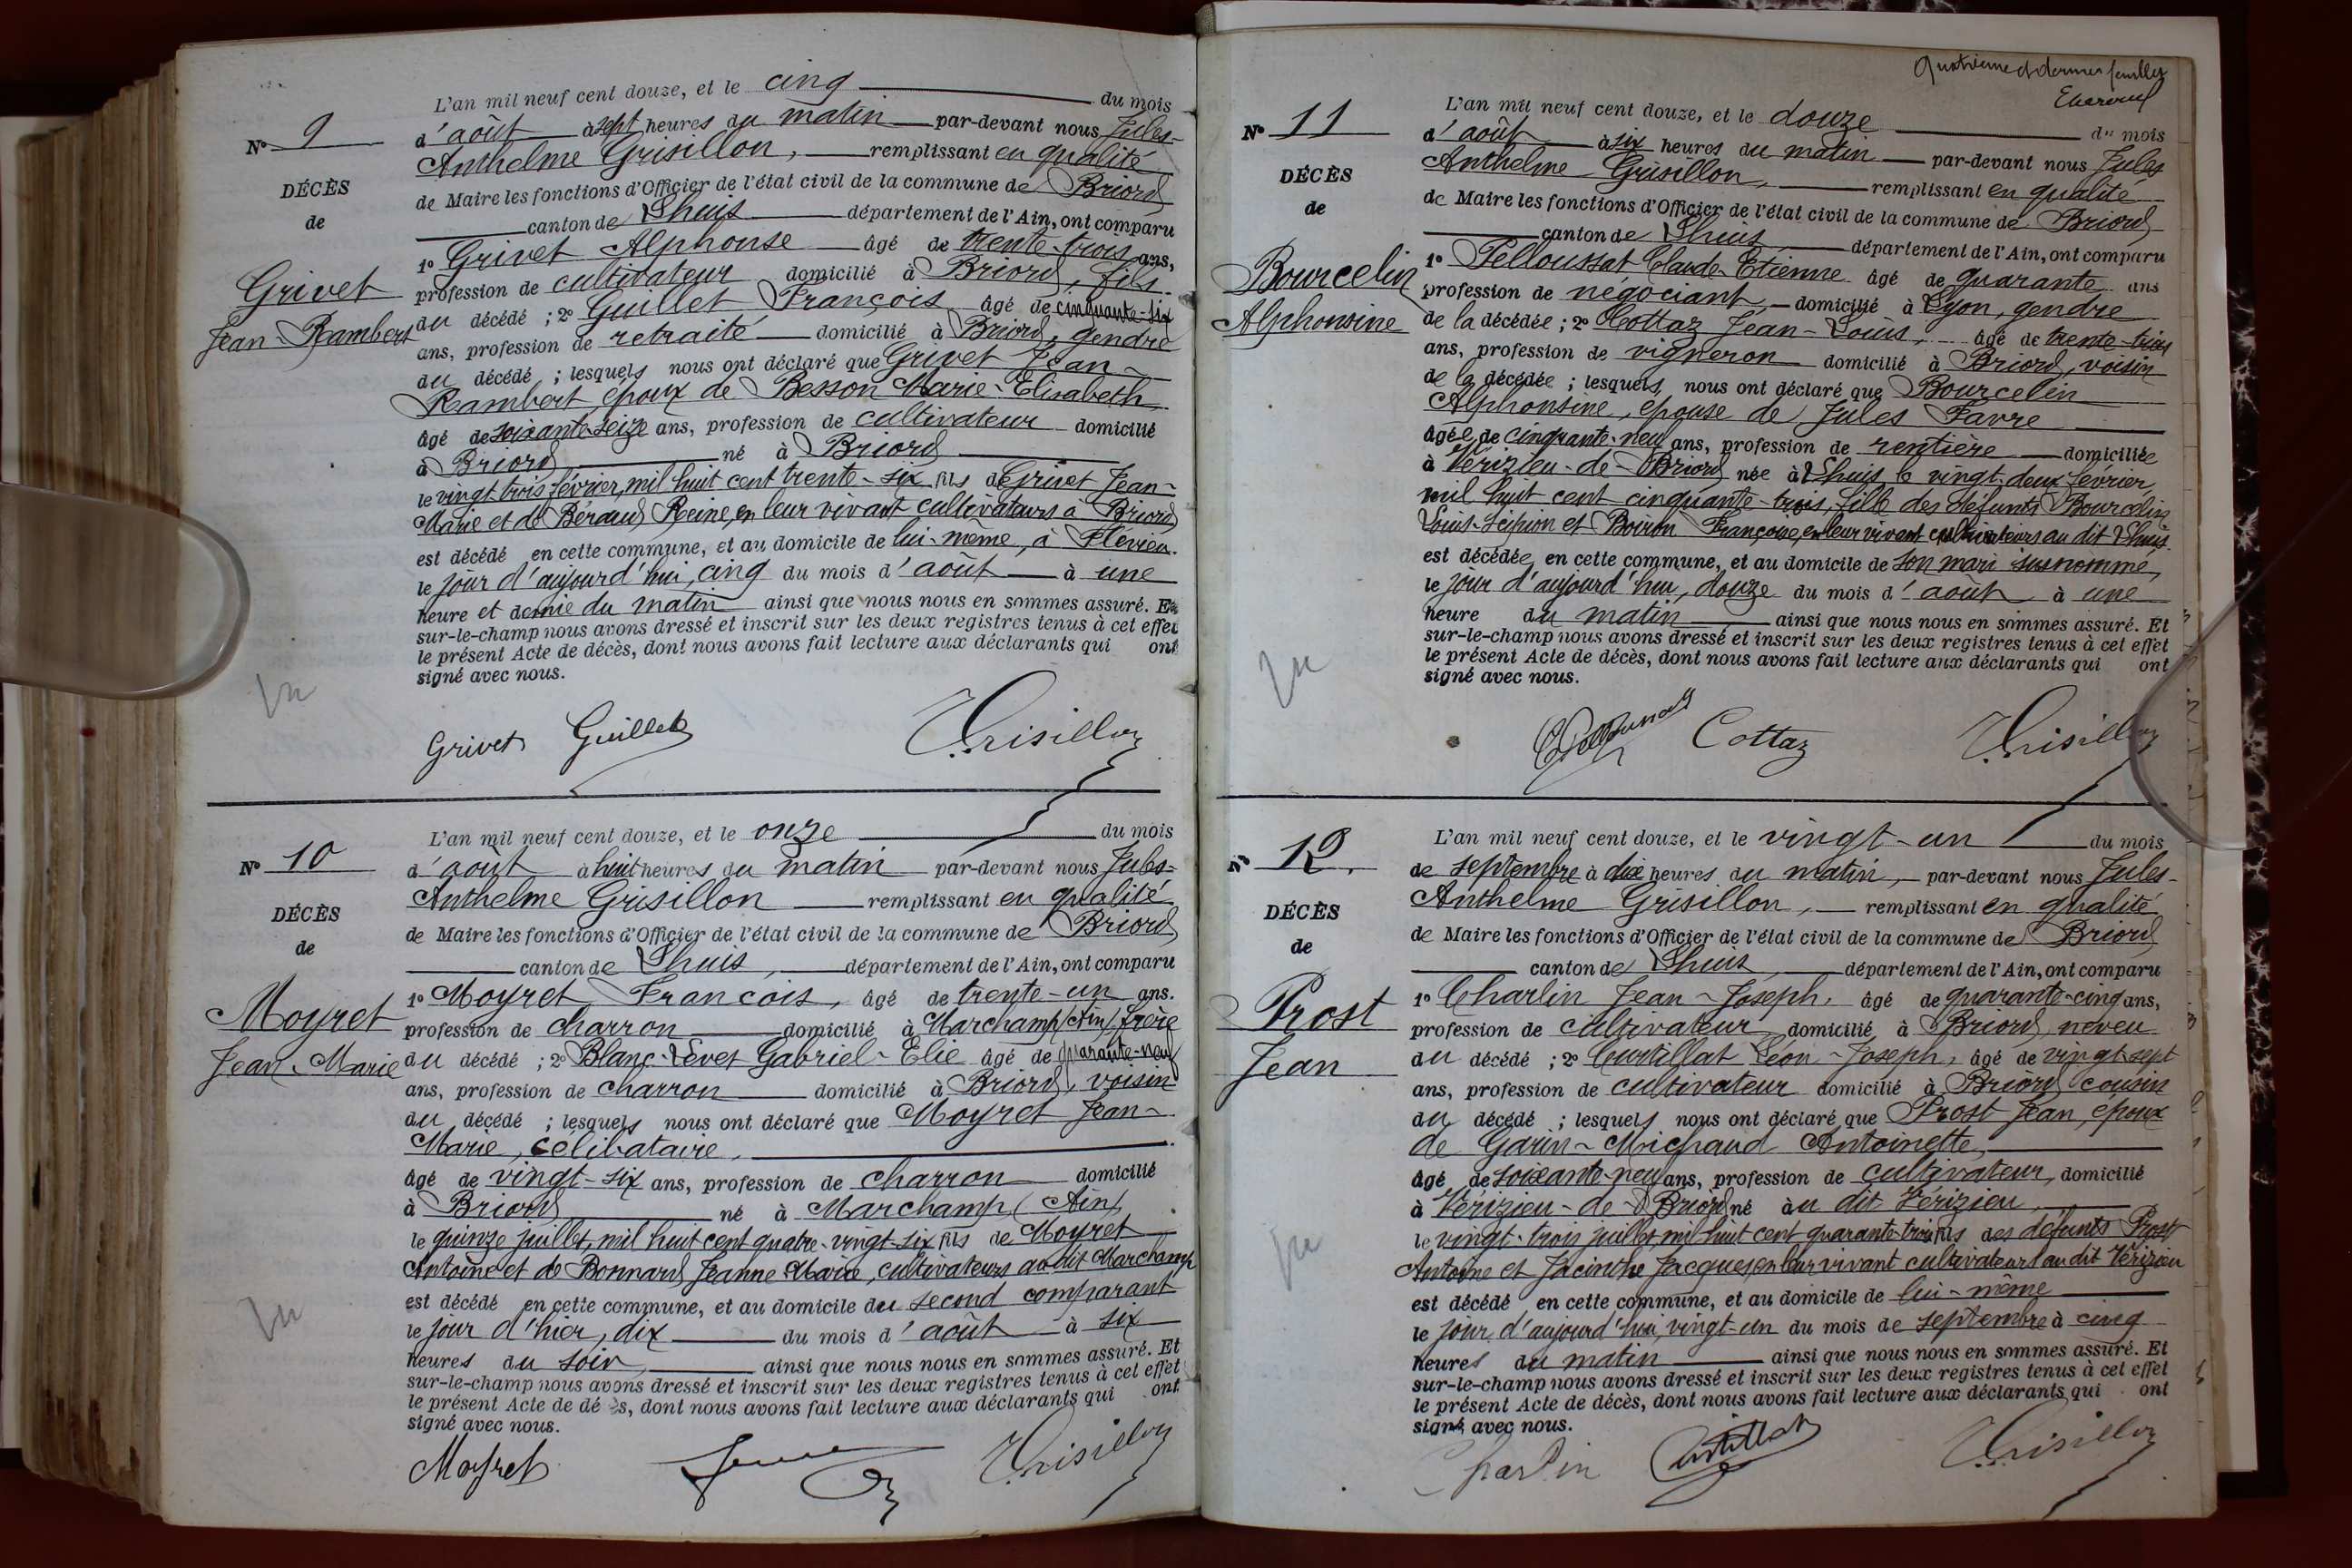 L'an mil neuf cent douze, et le cinq du mois
N° 9
d'août à sept heures du matin par-devant nous Jules-
Anthelme Grisillon, remplissant en qualité
DÉCÈS
de Maire les fonctions d'Officier de l'état civil de la commune de Briord
de
canton de Lhuis département de l'Ain, ont comparu
1° Grivet Alphonse âgé de trente-trois ans,
Grivet
profession de cultivateur domicilié à Briord, fils
Jean-Rambert
du décédé ; 2° Guillet François âgé de cinquante-six
ans, profession de retraité domicilié à Briord, gendre
du décédé ; lesquels nous ont déclaré que Grivet Jean-
Rambert époux de Besson Marie-Elisabeth
âgé de soixante-seize ans, profession de cultivateur domicilié
à Briord né à Briord
le vingt trois février, mil huit cent trente-six fils de Grivet Jean-
Marie et de Béraud Reine, en leur vivant cultivateurs à Briord
est décédé en cette commune, et au domicile de lui-même, à Flévieu.
le jour d'aujourd'hui, cinq du mois d'août à une
heure et demie du matin ainsi que nous nous en sommes assuré. Et
sur-le-champ nous avons dressé et inscrit sur les deux registres tenus à cet effet
le présent Acte de décès, dont nous avons fait lecture aux déclarants qui ont
signé avec nous.
Vu
Grivet Guillet Grisillon
L'an mil neuf cent douze, et le onze du mois
N° 10
d'août à huit heures du matin par-devant nous Jules-
Anthelme Grisillon remplissant en qualité
DÉCÈS
de Maire les fonctions d'Officier de l'état civil de la commune de Briord
de
canton de Lhuis, département de l'Ain, ont comparu
1° Moyret François, âgé de trente-un ans.
Moyret
profession de charron domicilié à Marchamp (Ain), frère
Jean-Marie
du décédé ; 2° Blanc-Levet Gabriel-Elie âgé de quarante-neuf
ans, profession de charron domicilié à Briord, voisin
du décédé ; lesquels nous ont déclaré que Moyret Jean-
Marie, célibataire,
âgé de vingt-six ans, profession de charron domicilié
à Briord né à Marchamp (Ain)
le quinze juillet, mil huit cent quatre-vingt-six fils de Moyret
Antoine et de Bonnard Jeanne Marie, cultivateurs au dit Marchamp
est décédé en cette commune, et au domicile du second comparant
le jour d'hier, dix du mois d'août à six
heures du soir, ainsi que nous nous en sommes assuré. Et
sur-le-champ nous avons dressé et inscrit sur les deux registres tenus à cet effet
le présent Acte de décès, dont nous avons fait lecture aux déclarants qui ont
signé avec nous.
Vu
Moyret Grisillon
Quatrième et dernier feuillet
L'an mil neuf cent douze, et le douze du mois
N° 11
d'août à six heures du matin par-devant nous Jules
Anthelme Grisillon, remplissant en qualité
DÉCÈS
de Maire les fonctions d'Officier de l'état civil de la commune de Briord
de
canton de Lhuis département de l'Ain, ont comparu
1° Pelloussat Claude-Etienne âgé de quarante ans
Bourcelin
profession de négociant, domicilié à Lyon, gendre
Alphonsine
de la décédée ; 2° Cottaz Jean-Louis, âgé de trente-trois
ans, profession de vigneron domicilié à Briord, voisin
de la décédée ; lesquels, nous ont déclaré que Bourcelin
Alphonsine, épouse de Jules Favre
âgée de cinquante-neuf ans, profession de rentière domiciliée
à Vérizieu-de-Briord née à Lhuis, le vingt-deux février
mil huit cent cinquante-trois, fille des défunts Bourcelin
Louis-Scipion et Boiron Françoise, en leur vivant cultivateurs au dit Lhuis.
est décédée, en cette commune, et au domicile de son mari susnommé,
le jour d'aujourd'hui, douze du mois d'août à une
heure du matin ainsi que nous nous en sommes assuré. Et
sur-le-champ nous avons dressé et inscrit sur les deux registres tenus à cet effet
le présent Acte de décès, dont nous avons fait lecture aux déclarants qui ont
signé avec nous.
Vu
Cottaz Grisillon
L'an mil neuf cent douze, et le vingt-un du mois
N° 12.
de septembre à dix heures du matin, par-devant nous Jules-
Anthelme Grisillon, remplissant en qualité
DÉCÈS
de Maire les fonctions d'Officier de l'état civil de la commune de Briord
de
canton de Lhuis, département de l'Ain, ont comparu
1° Charlin Jean-Joseph, âgé de quarante-cinq ans,
Prost
profession de cultivateur, domicilié à Briord, neveu
Jean
du décédé ; 2° Curtillat Léon-Joseph, âgé de vingt-sept
ans, profession de cultivateur domicilié à Briord cousin
du décédé ; lesquels nous ont déclaré que Prost Jean, époux
de Garin-Michaud Antoinette,
âgé de soixante-neuf ans, profession de cultivateur, domicilié
à Vérizieu-de-Briord né au dit Vérizieu,
le vingt-trois juillet, mil huit cent quarante-trois fils des défunts Prost
Antoine et Jacinthe Jacques, en leur vivant cultivateurs au dit Vérizieu
est décédé en cette commune, et au domicile de lui-même
le jour d'aujourd'hui, vingt-un du mois de septembre à cinq
heures du matin ainsi que nous nous en sommes assuré. Et
sur-le-champ nous avons dressé et inscrit sur les deux registres tenus à cet effet
le présent Acte de décès, dont nous avons fait lecture aux déclarants qui ont
signé avec nous.
Vu
Charlin Curtillat Grisillon